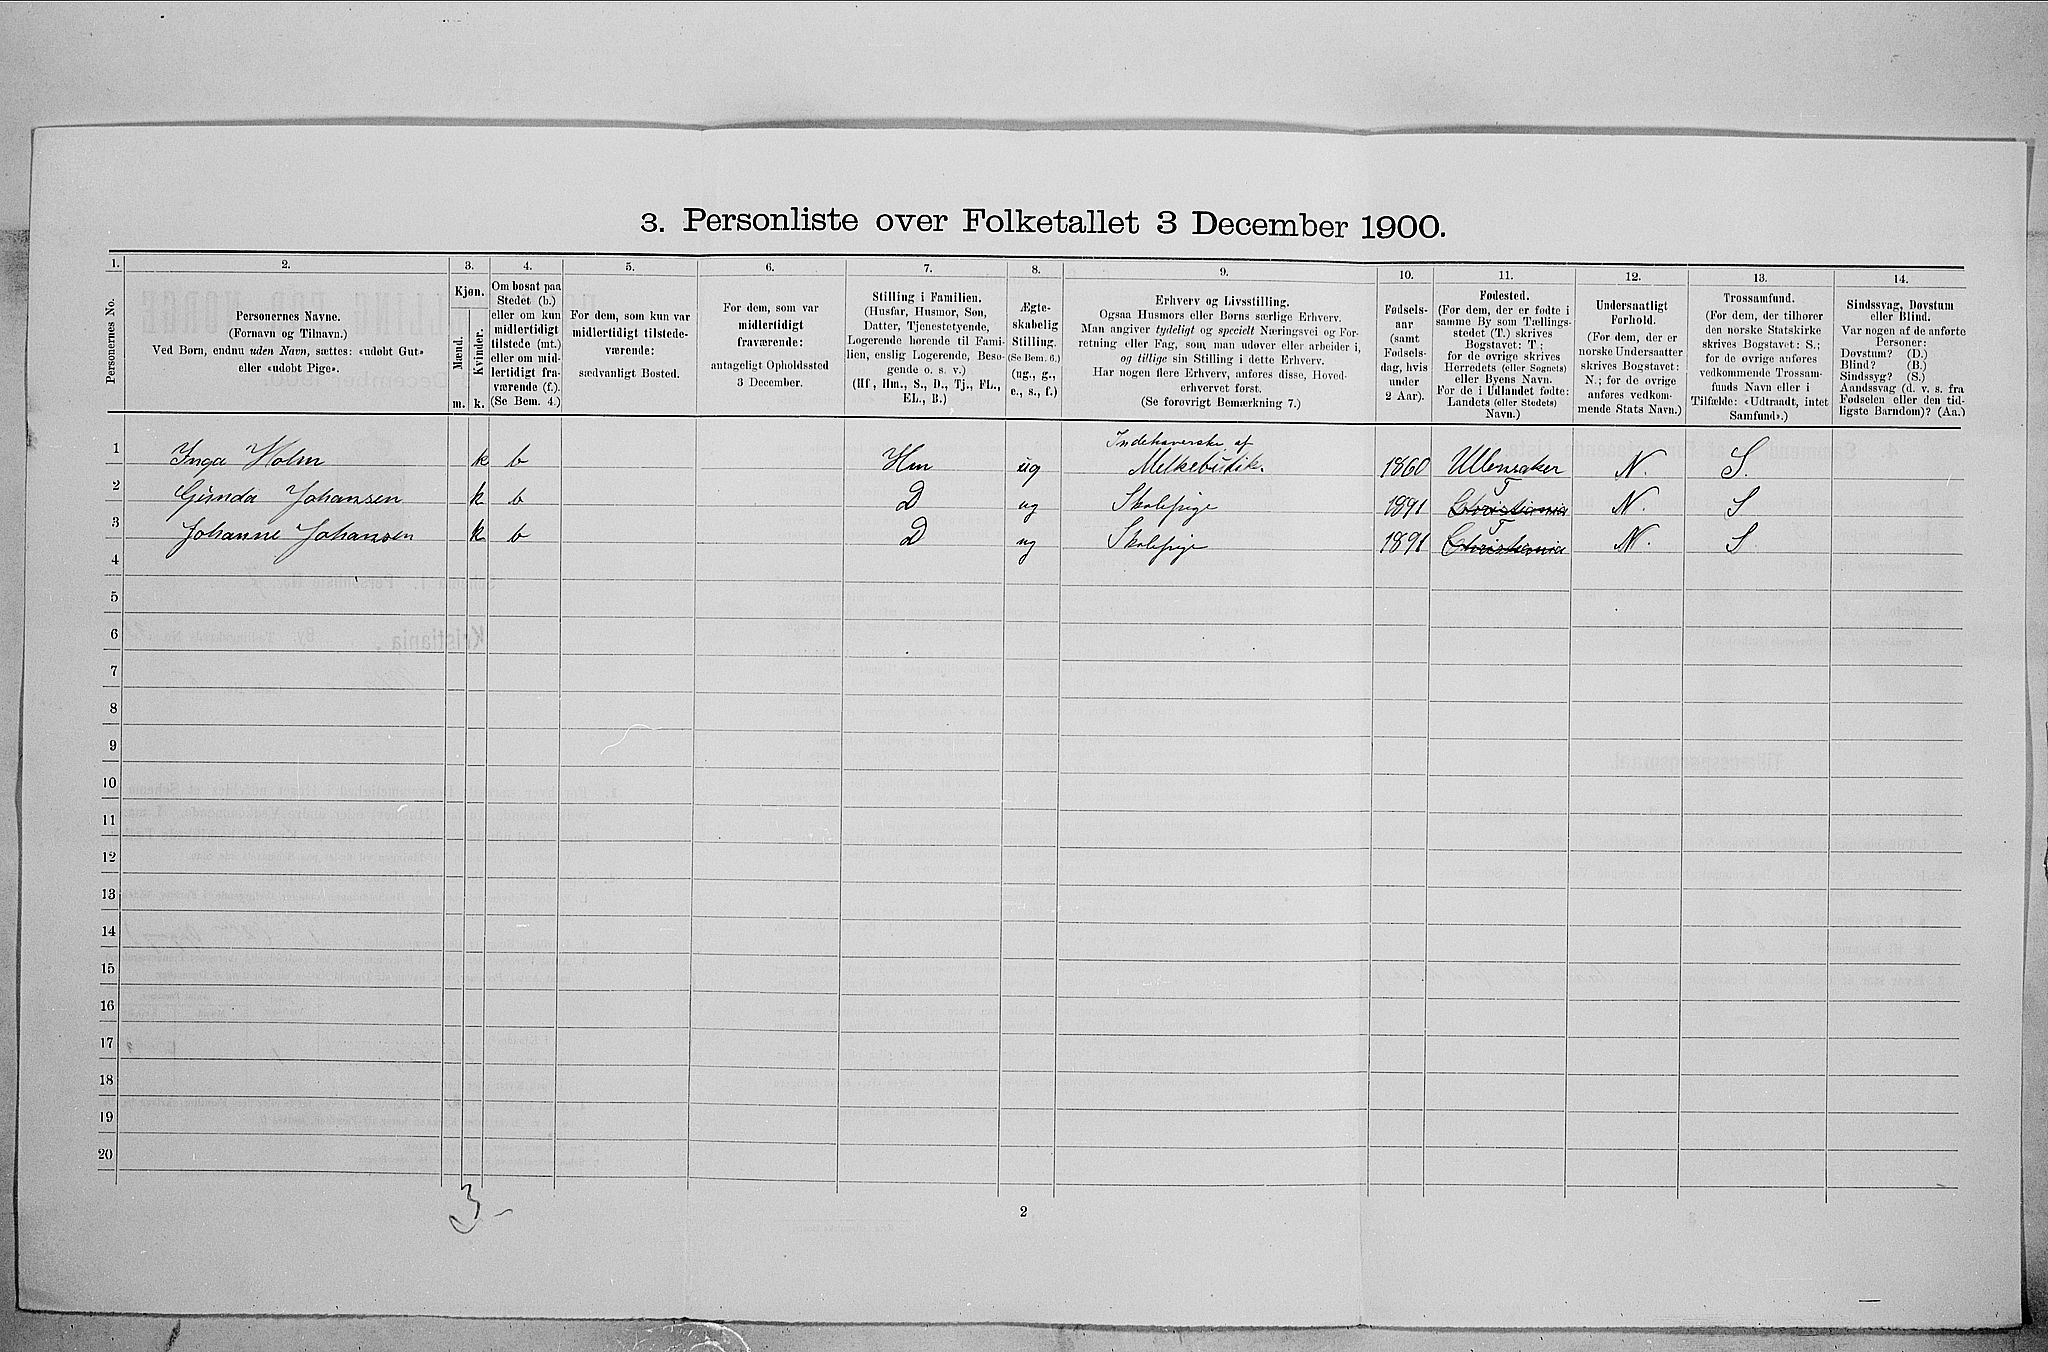 3. Personliste over Folketallet 3 December 1900.
1. 2. 3. 4. 5. 6. 7. 8. 9. 10. 11. 12. 13. 14.
Personernes No.
Personernes Navne.
(Fornavn og Tilnavn.)
Ved Børn, endnu uden Navn, sættes: «udøbt Gut»
eller «udøbt Pige».
Kjøn.
Mænd.
Kvinder.
m. k.
Om bosat paa
Stedet (b.)
eller om kun
midlertidigt
tilstede (mt.)
eller om mid-
lertidigt fra-
værende (f.).
(Se Bem. 4.)
For dem, som kun var
midlertidigt tilstede-
værende:
sædvanligt Bosted.
For dem, som var
midlertidigt
fraværende:
antageligt Opholdssted
3 December.
Stilling i Familien.
(Husfar, Husmor, Søn,
Datter, Tjenestetyende,
Logerende hørende til Fami-
lien, enslig Logerende, Besø-
gende o. s. v.)
(Hf, Hm., S., D., Tj., FL.,
EL., B.)
Ægte-
skabelig
Stilling.
(Se Bem. 6.)
(ug., g.,
e., s., f.)
Erhverv og Livsstilling.
Ogsaa Husmors eller Børns særlige Erhverv.
Man angiver tydeligt og specielt Næringsvei og For-
retning eller Fag, som man udøver eller arbeider i,
og tillige sin Stilling i dette Erhverv.
Har nogen flere Erhverv, anføres disse, Hoved-
erhvervet først.
(Se forøvrigt Bemærkning 7.)
Fødsels-
aar
(samt
Fødsels-
dag, hvis
under
2 Aar).
Fødested.
(For dem, der er fødte i
samme By som Tællings-
stedet (T.) skrives
Bogstavet: T;
for de øvrige skrives
Herredets (eller Sognets)
eller Byens Navn.
For de i Udlandet fødte:
Landets (eller Stedets)
Navn.)
Undersaatligt
Forhold.
(For dem, der er
norske Undersaatter
skrives Bogstavet:
N.; for de øvrige
anføres vedkom-
mende Stats Navn.)
Trossamfund.
(For dem, der tilhører
den norske Statskirke
skrives Bogstavet: S.;
for de øvrige anføres
vedkommende Trossam-
funds Navn eller i
Tilfælde: «Udtraadt, intet
Samfund».)
Sindssvag, Døvstum
eller Blind.
Var nogen af de anførte
Personer:
Døvstum? (D.)
Blind? (B.)
Sindssyg? (S.)
Aandssvag (d. v. s. fra
Fødselen eller den tid-
ligste Barndom)? (Aa.)
Indehaverske af
1 Inga Holm k b Hm ug Melkebutik. 1860 Ullensaker N. S.
2 Gunda Johansen k b D ug Skolepige 1891 Christiania T N. S
3 Johanne Johansen k b D ug Skolepige 1891 Christiania T N. S.
4
5
6
7
8
9
10
11
12
13
14
15
16
17
18
19
20
3
2